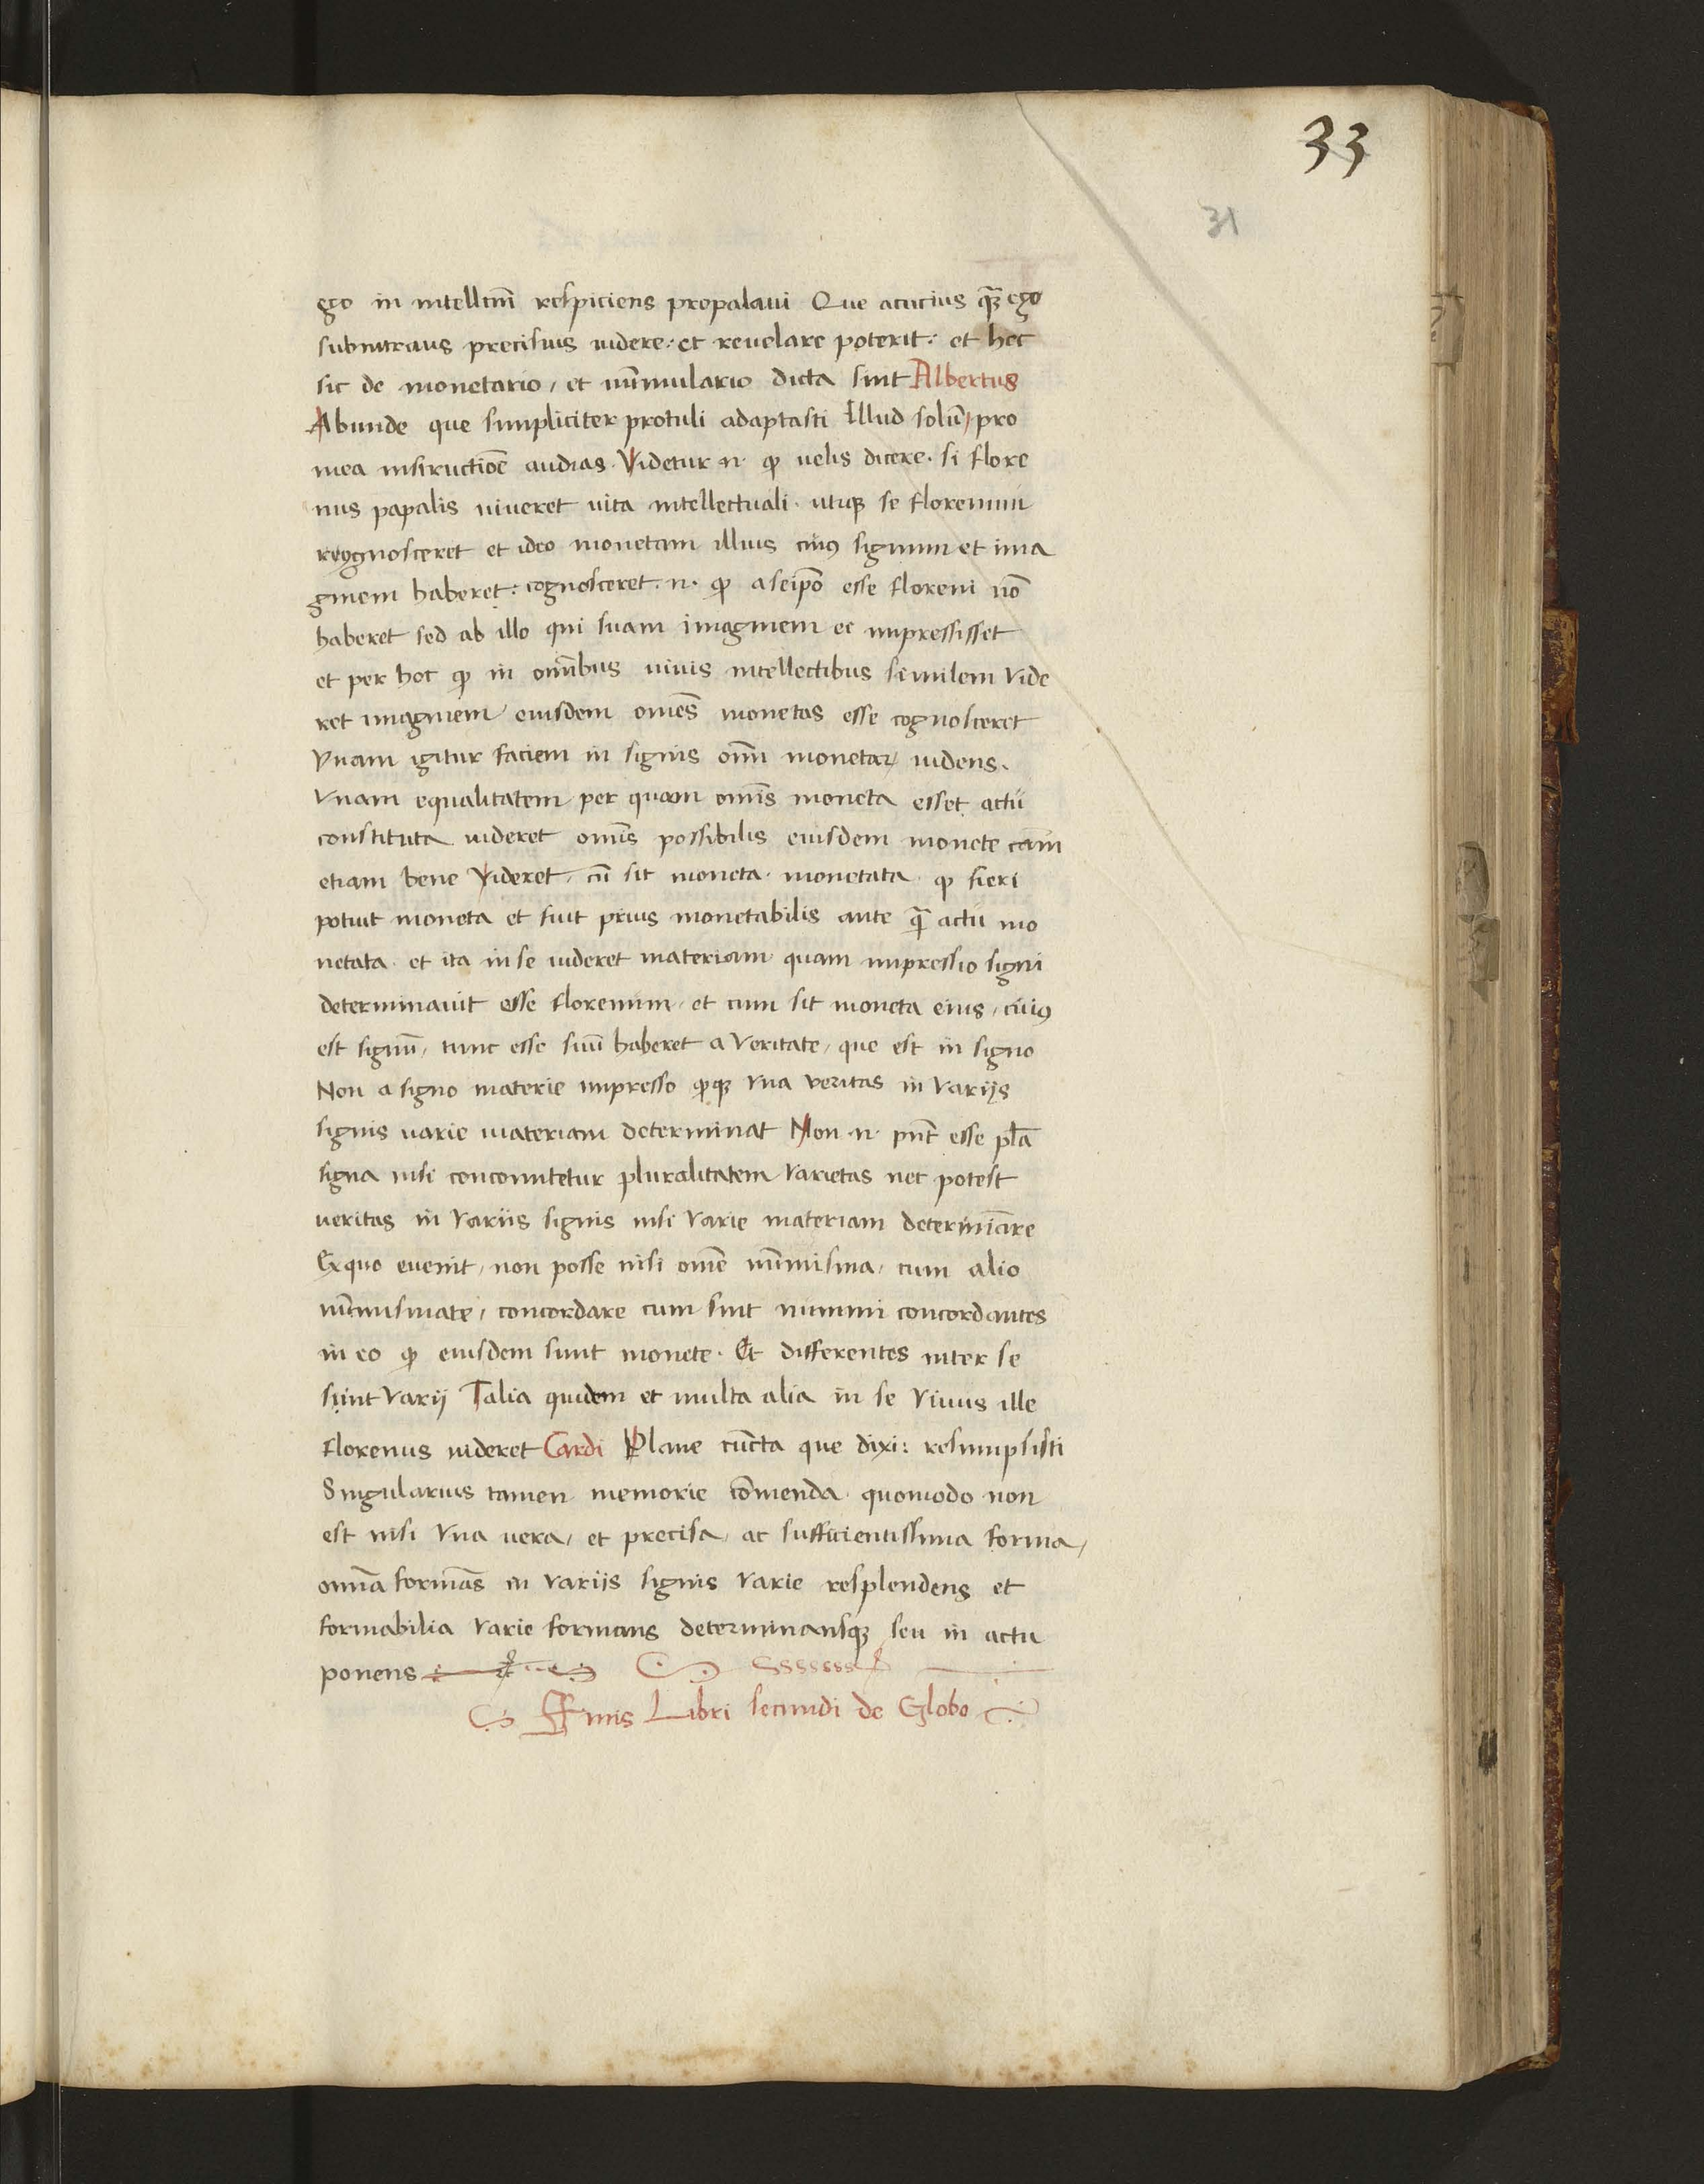 33
31
go in intellm̄ respiciens propalaui Que acucius qȝ̄ ego
subintrans precisius uidere: et reuelare poterit: et hec
sic de monetario, et nūmulario dicta sint Albertus
Abunde que simpliciter protuli adaptasti Illud solū, pro
mea instructiōe audias. Videtur .n. ꝙ uelis dicere. si flore
nus papalis uiueret uita intellectuali. utiqȝ se florenum
cognosceret et ideo monetam illius cuiꝰ signum et ima
ginem haberet: cognosceret .n. ꝙ a seip̄o esse floreni nō
haberet sed ab illo qui suam imaginem ei impressisset
et per hoc ꝙ in omībus uiuis intellectibus similem vide
ret imaginem eiusdem om̄es monetas esse cognosceret
Vnam igitur faciem in signis om̄i monetaꝝ uidens.
Vnam equalitatem per quam om̄is moneta esset actu
constituta uideret om̄is possibilis eiusdem monete cām
etiam bene videret, cū sit moneta monetata ꝙ fieri
potuit moneta et fuit prius monetabilis ante q̄ꝫ actu mo
netata. et ita in se uideret materiam quam impressio signi
determinauit esse florenum, et cum sit moneta eius, cuiꝰ
est signū, tunc esse suū haberet a veritate, que est in signo
Non a signo materie impresso ꝙqȝ vna veritas in varijs
signis uarie materiam determinat Non .n. pn̄t esse pl̄a
signa nisi concomitetur pluralitatem varietas nec potest
ueritas in variis signis nisi varie materiam determiāre
Ex quo euenit, non posse nisi om̄e nūmisma, cum alio
nūmismate, concordare cum sint nummi concordantes
in eo ꝙ eiusdem sunt monete. Et differentes inter se
sunt varij Talia quidem et multa alia in se viuus ille
florenus uideret Cardi Plane cūcta que dixi: resumpsisti
Singularius tamen memorie cōmenda quomodo non
est nisi vna uera, et precisa, ac sufficientissima forma,
omn̄a formās in varijs signis varie resplendens et
formabilia varie formans determinansqȝ seu in actu
ponens
Finis Libri secundi de Globo